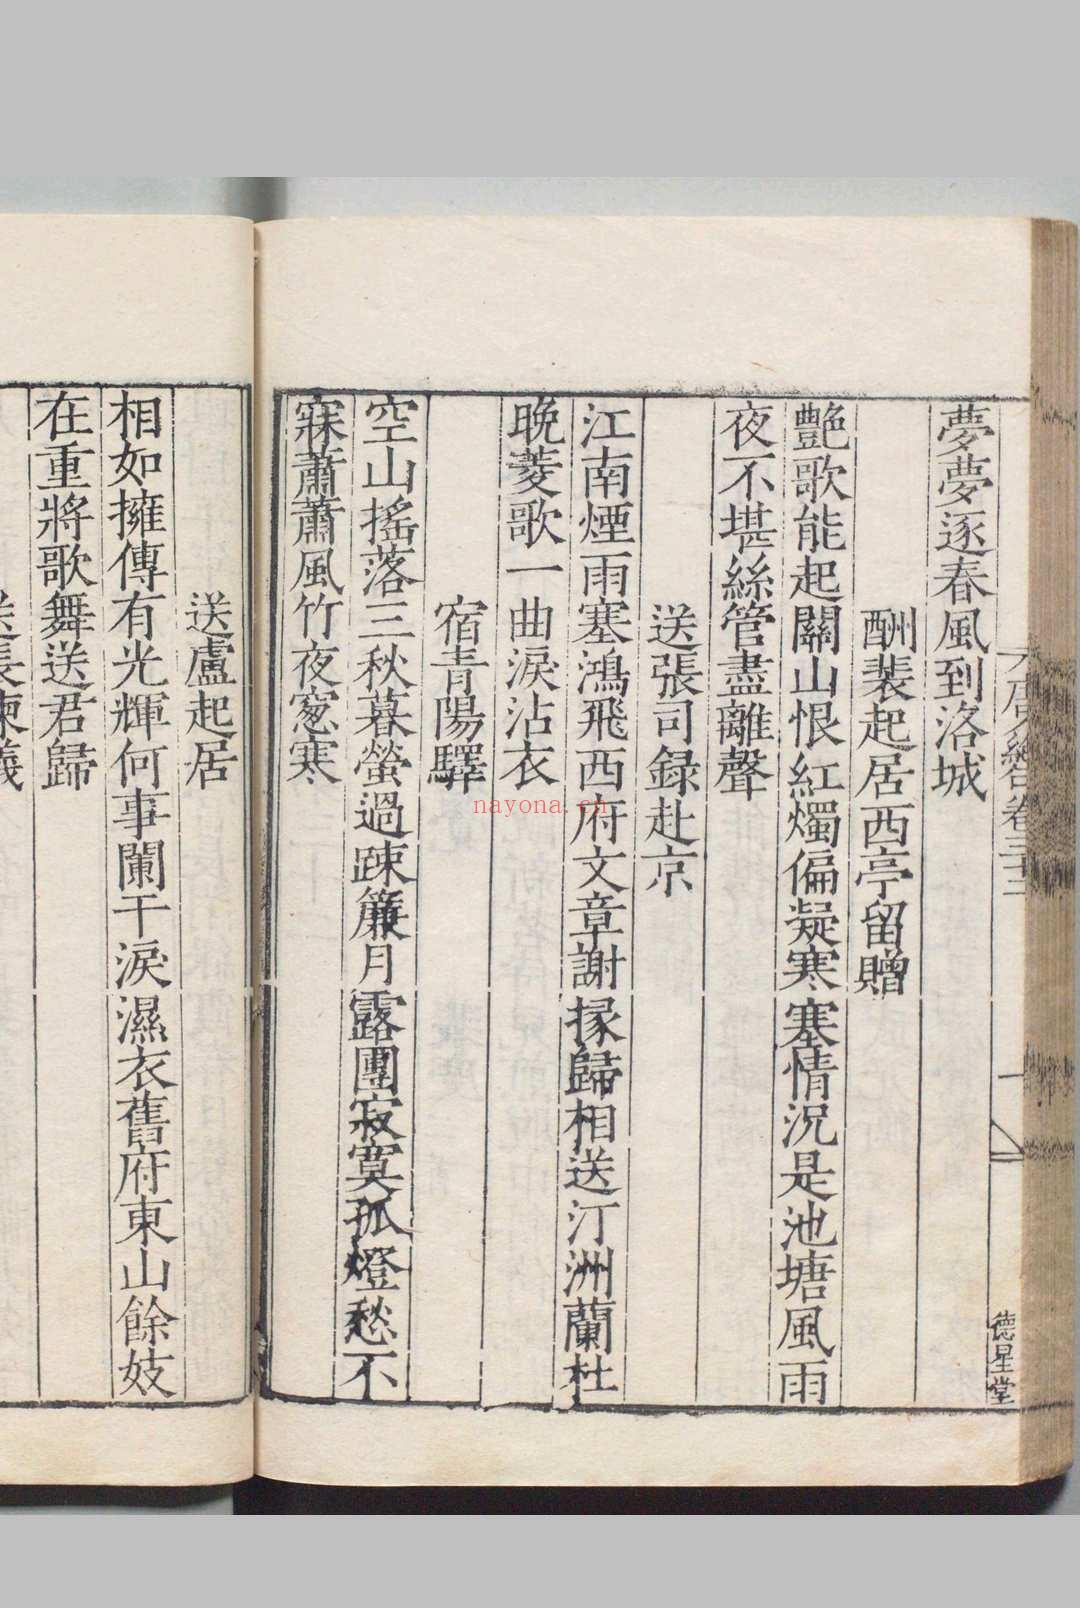 夢夢逐春風到洛城
酬裴起居西亭留贈
艷歌能起關山恨紅燭偏凝寒塞情況是池塘風雨
夜不堪絲管盡離聲
送張司録赴京
江南煙雨塞鴻飛西府文章謝掾歸相送汀洲蘭杜
晚菱歌一曲淚沾衣
宿青陽驛
空山搖落三秋暮螢過疎簾月露團寂寞孤燈愁不
寐蕭蕭風竹夜窻寒
送盧起居
相如擁傳有光輝何事闌干淚濕衣舊府東山餘妓
在重將歌舞送君歸
卷三十二
德星堂
nayona.cn